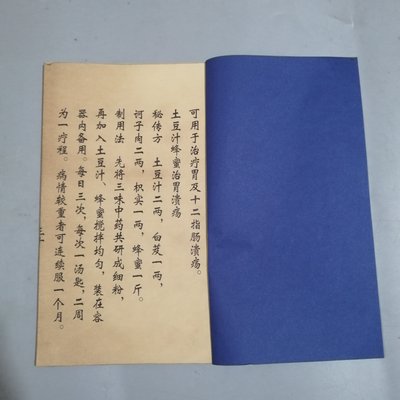 可用于治疗胃及十二指肠溃疡。
土豆汁蜂蜜治胃溃疡
秘传方 土豆汁二两，白芨一两，
诃子肉二两，枳实一两，蜂蜜一斤。
制用法 先将三味中药共研成细粉，
再加入土豆汁、蜂蜜搅拌均匀，装在容
器内备用。每日三次，每次一汤匙，二周
为一疗程。病情较重者可连续服一个月。